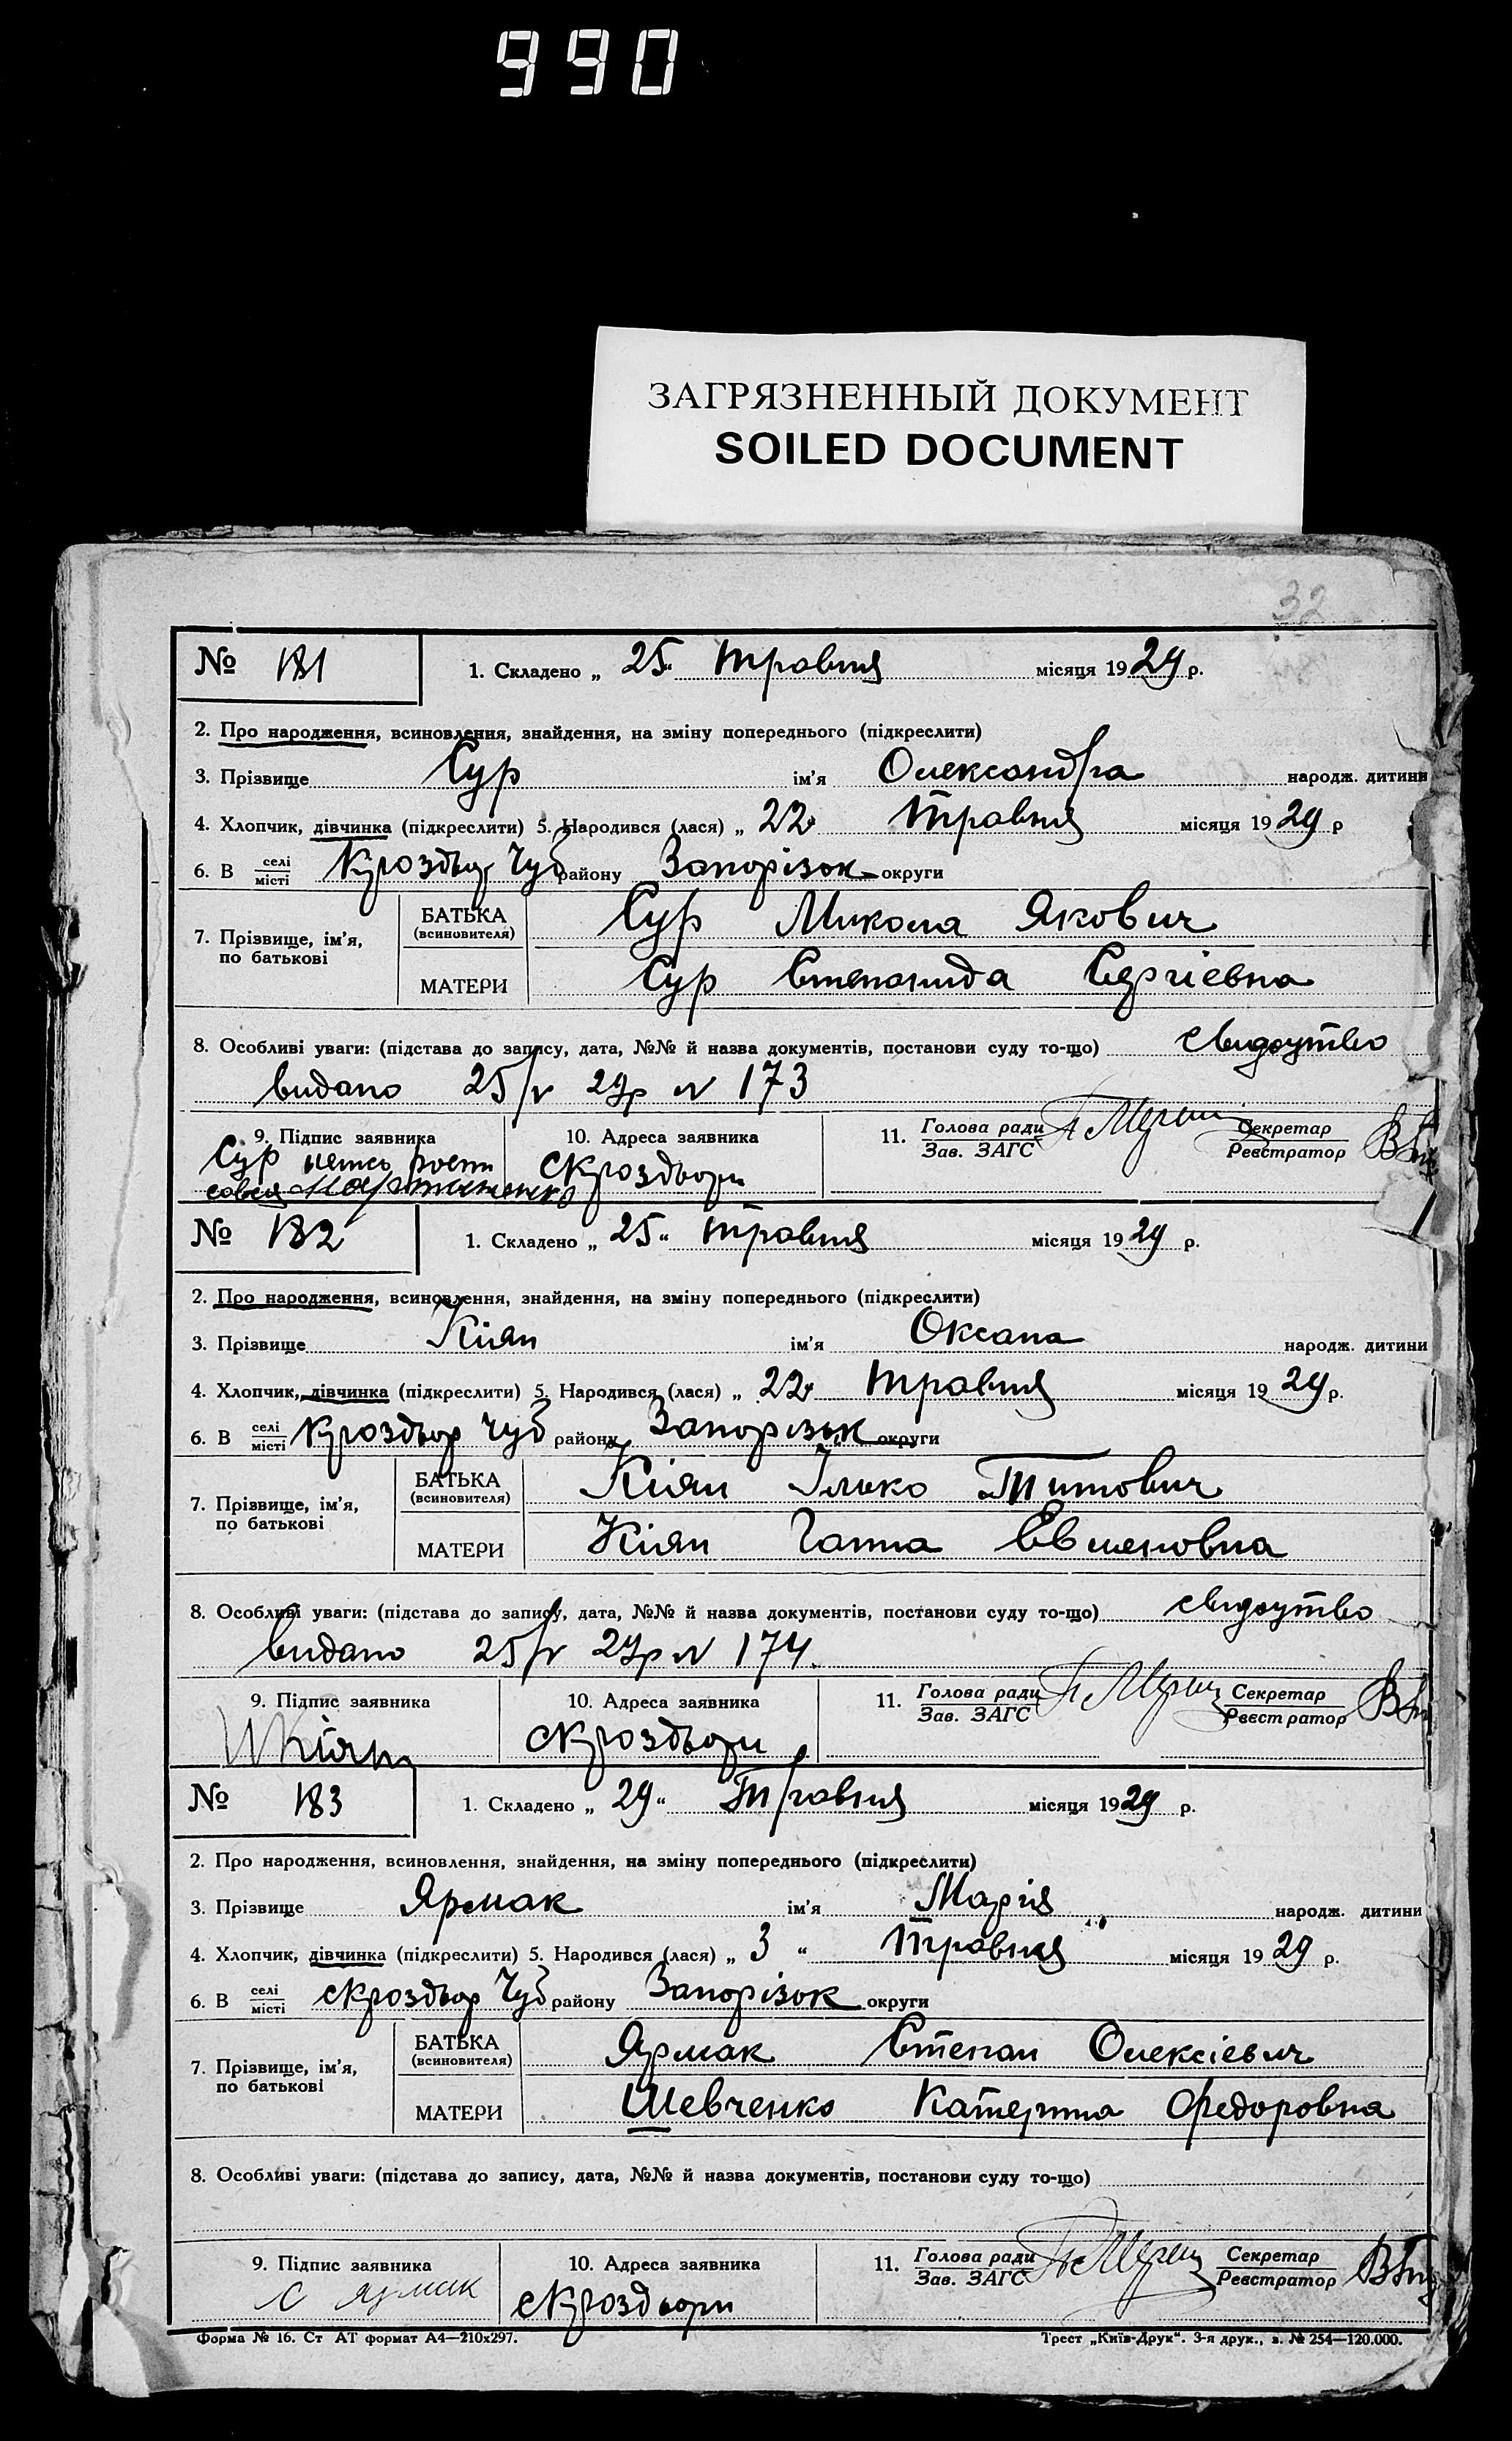 990
ЗАГРЯЗНЕННЫЙ ДОКУМЕНТ
SOILED DOCUMENT
32
№ 181 1. Складено „ 25 “ травня місяця 1929 р.
2. Про народження, всиновлення, знайдення, на зміну попереднього (підкреслити)
3. Прізвище Сур ім’я Олександра народж. дитини
4. Хлопчик, дівчинка (підкреслити) 5. Народився (лася) „ 22 “ травня місяця 1929 р
6. В селі/місті Чуб району Запорізьк округи
7. Прізвище, ім’я, по батькові
БАТЬКА (всиновителя) Сур Микола Якович
МАТЕРИ Сур Степанида Сергіевна
8. Особливі уваги: (підстава до запису, дата, №№ й назва документів, постанови суду то-що) свидоцтво
видано 25/V 29р N 173
9. Підпис заявника 10. Адреса заявника 11. Голова ради/Зав. ЗАГС Секретар/Реєстратор
Сур
№ 182 1. Складено „ 25 “ травня місяця 1929 р.
2. Про народження, всиновлення, знайдення, на зміну попереднього (підкреслити)
3. Прізвище Кіян ім’я Оксана народж. дитини
4. Хлопчик, дівчинка (підкреслити) 5. Народився (лася) „ 22 “ травня місяця 1929 р.
6. В селі/місті Чуб району Запорізьк округи
7. Прізвище, ім’я, по батькові
БАТЬКА (всиновителя) Кіян Ілько Титович
МАТЕРИ Кіян Ганна Евменовна
8. Особливі уваги: (підстава до запису, дата, №№ й назва документів, постанови суду то-що) свидоцтво
видано 25/V 29р N 174.
9. Підпис заявника 10. Адреса заявника 11. Голова ради/Зав. ЗАГС Секретар/Реєстратор
Кіян
№ 183 1. Складено „ 29 “ Травня місяця 1929 р.
2. Про народження, всиновлення, знайдення, на зміну попереднього (підкреслити)
3. Прізвище Ярмак ім’я Марія народж. дитини
4. Хлопчик, дівчинка (підкреслити) 5. Народився (лася) „ 3 “ травня місяця 1929 р.
6. В селі/місті Чуб району Запорізок округи
7. Прізвище, ім’я, по батькові
БАТЬКА (всиновителя) Ярмак Степан Олексіевич
МАТЕРИ Шевченко Катерина Федоровна
8. Особливі уваги: (підстава до запису, дата, №№ й назва документів, постанови суду то-що)
9. Підпис заявника 10. Адреса заявника 11. Голова ради/Зав. ЗАГС Секретар/Реєстратор
С Ярмак
Форма № 16. Ст АТ формат А4—210х297. Трест „Київ-Друк“. 3-я друк., з. № 254—120.000.